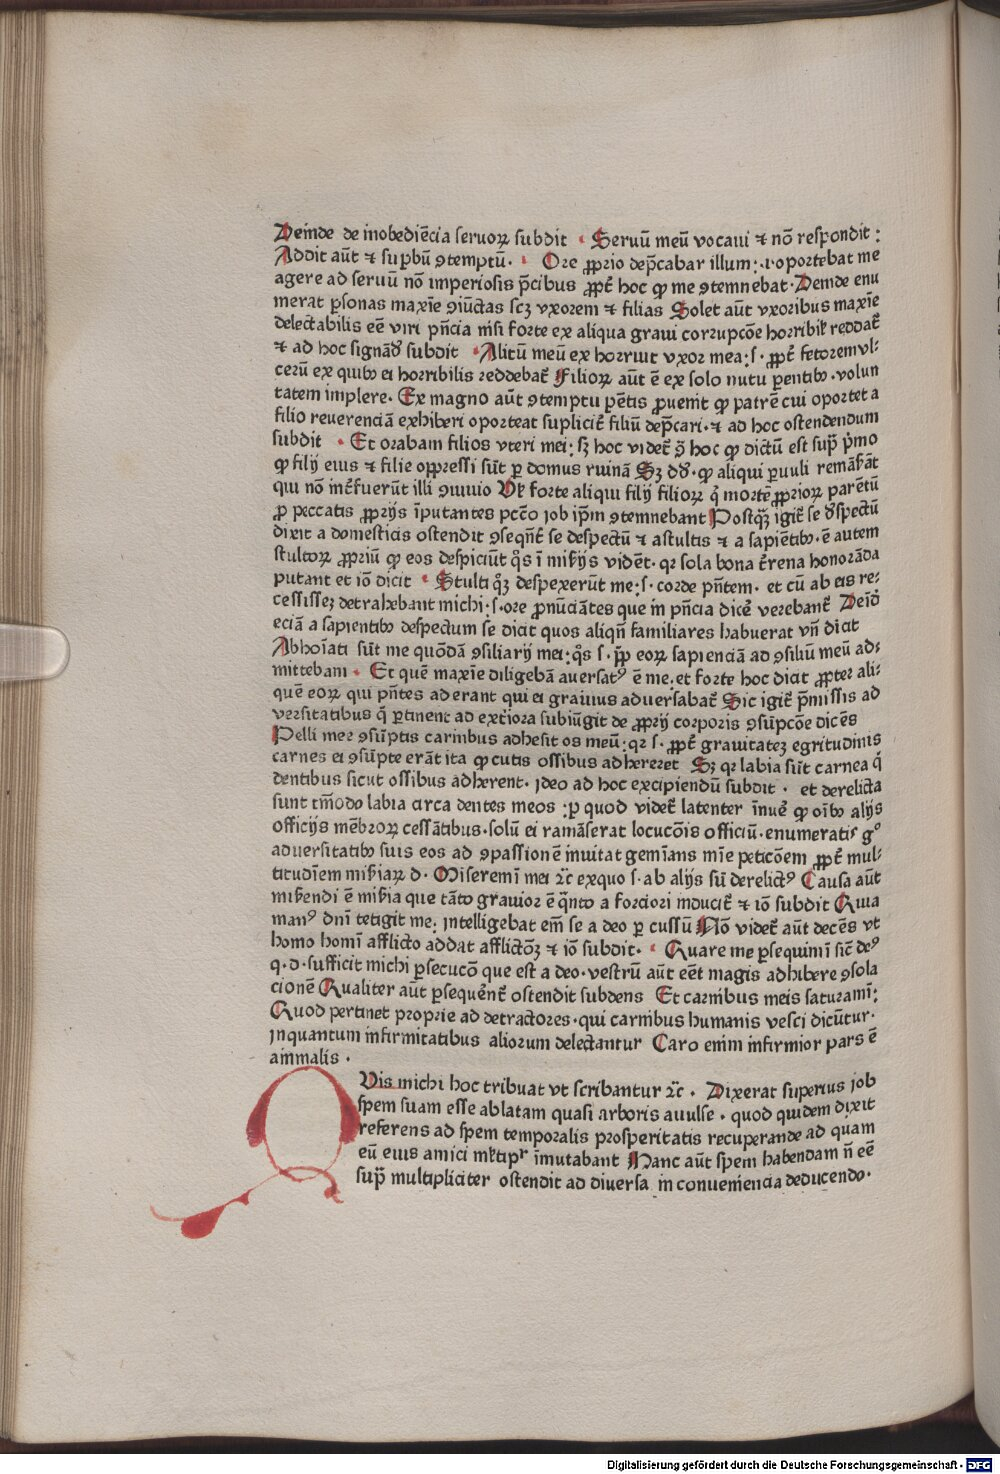 Deinde de inobediẽcia seruoꝝ subdit · Seruũ meũ vocaui ⁊ nõ respondit :
Addit aũt ⁊ suꝑbũ ꝯtemptũ · Ore ꝓprio dep̃cabar illum : · oportebat me
agere ad seruũ nõ imperiosis p̃cibus ꝓpt̃ hoc ꝙ me ꝯtemnebat · Deinde enu
merat ꝑsonas maxĩe ꝯiũctas scꝫ vxorem ⁊ filias Solet aũt vxoribus maxĩe
delectabilis eẽ viri pñcia nisi forte ex aliqua graui corrupcõe horribił reddat̃
⁊ ad hoc signãđ subdit · Alitũ meũ ex horruit vxor mea : s · ꝓpt̃ fetorem vl⸗
cerũ ex quibꝰ ei horribilis reddebat̃ Filioꝝ aũt ẽ ex solo nutu ꝑentibꝰ · volun
tatem implere · Ex magno aũt ꝯtemptu ꝑẽtis ꝓuenit ꝙ patrẽ cui oportet a
filio reuerenciã exhiberi oporteat suplicit̃ filiũ dep̃cari · ⁊ ad hoc ostendendum
subdit · Et orabam filios vteri mei : sꝫ hoc videt̃ ꝯ̃ hoc ꝙ dictũ est sup̃ p̃mo
ꝙ filij eius ⁊ filie oppressi sũt ꝑ domus ruinã Sꝫ dđ · ꝙ aliqui ꝑuuli remãs̃ãt
qui nõ int̃fuerũt illi ꝯuiuio Vł forte aliqui filij filioꝝ q̃ mortẽ ꝓprioꝝ parẽtũ
ꝓ peccatis ꝓprijs ĩputantes pctõ job ip̃m ꝯtemnebant Postq̃ꝫ igit̃ se đspectũ
dixit a domesticis ostendit ꝯseqñt̃ se despectũ ⁊ a stultis ⁊ a sapiẽtibꝰ · ẽ autem
stultoꝝ ꝓpriũ ꝙ eos despiciũt q̃s ĩ mis̃ijs vidẽt · qꝛ sola bona t̃rena honorãda
putant et iõ dicit · Stulti q̃ꝫ despexerũt me : s · corde pñtem · et cũ ab eis re⸗
cessisseꝫ detrahebant michi · s · ore ꝓnũciãtes que in pñcia dice̾ verebant̃ Deiñ
eciã a sapientibꝰ despectum se dicit quos aliqñ familiares habuerat vñ dicit
Abhoĩati sũt me quõdã ꝯsiliarij mei : q̃s s · ꝓp̃ eoꝝ sapienciã ad ꝯsiliũ meũ ad⸗
mittebam · Et quẽ maxĩe diligebã auersatꝰ ẽ me · et forte hoc dicit ꝓpter ali⸗
quẽ eoꝝ qui pñtes aderant qui ei grauius aduersabat̃ Sic igit̃ p̃missis ad
versitatibus q̃ ꝑtinent ad ext̃iora subiũgit de ꝓprij corporis ꝯsũpcõe dicẽs
Pelli mee ꝯsũptis carnibus adhesit os meũ : qꝛ s · ꝓpt̃ grauitateꝫ egritudinis
carnes ei ꝯsũpte erãt ita ꝙ cutis ossibus adhereret Sꝫ qꝛ labia sũt carnea q̃
dentibus sicut ossibus adherent · jdeo ad hoc excipiendũ subdit · et derelicta
sunt tm̃odo labia circa dentes meos : ꝑ quod videt̃ latenter ĩnue̾ ꝙ oĩbꝰ alijs
officijs mẽbroꝝ cessãtibus · solũ ei ramãserat locucõis officiũ · enumeratis gͦ
aduersitatibꝰ suis eos ad ꝯpassionẽ inuitat gemĩans mĩe peticõem ꝓpt̃ mul⸗
titudĩem mis̃iaꝝ d · Miseremĩ mei ⁊c̃ exquo s · ab alijs sũ derelictꝰ Causa aũt
mis̃endi ẽ mis̃ia que tãto grauior ẽ q̃nto a forciori inducit̃ ⁊ iõ subdit Quia
manꝰ dñi tetigit me : jntelligebat em̃ se a deo ꝑ cussũ Nõ videt̃ aũt decẽs vt
homo homĩ afflicto addat afflictõꝫ ⁊ iõ subdit · Quare me ꝑsequimĩ sic̃ deꝰ
q · d · sufficit michi ꝑsecucõ que est a deo · vestrũ aũt eẽt magis adhibere ꝯsola
cionẽ Qualiter aũt ꝑsequẽnt̃ ostendit subdens Et carnibus meis saturamĩ :
Quod pertinet proprie ad detractores · qui carnibus humanis vesci dicũtur ·
jnquantum infirmitatibus aliorum delectantur Caro enim infirmior pars ẽ
animalis ·
QVis michi hoc tribuat vt scribantur ⁊c̃ · Dixerat superius job
spem suam esse ablatam quasi arboris auulse · quod quidem dixit
referens ad spem temporalis prosperitatis recuperande ad quam
eũ eius amici mĺtipꝛ ĩmutabant Hanc aũt spem habendam ñ eẽ
sup̃ multipliciter ostendit ad diuersa inconueniencia deducendo ·
Digitalisierung gefördert durch die Deutsche Forschungsgemeinschaft - DFG